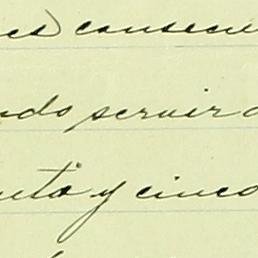 es consecu
ndo servir a
nta y cinco